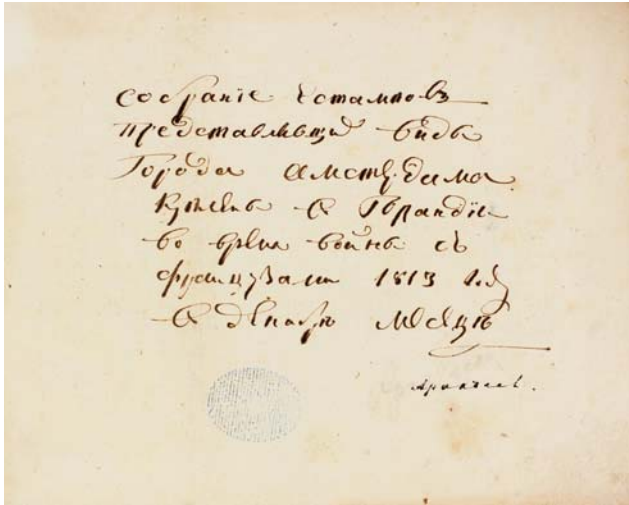 Собранiе Естамповъ
представлющи виды
Города Амстердама
Куплено в Голандiи
во время войны съ
французами 1813 год
в декабре месяце